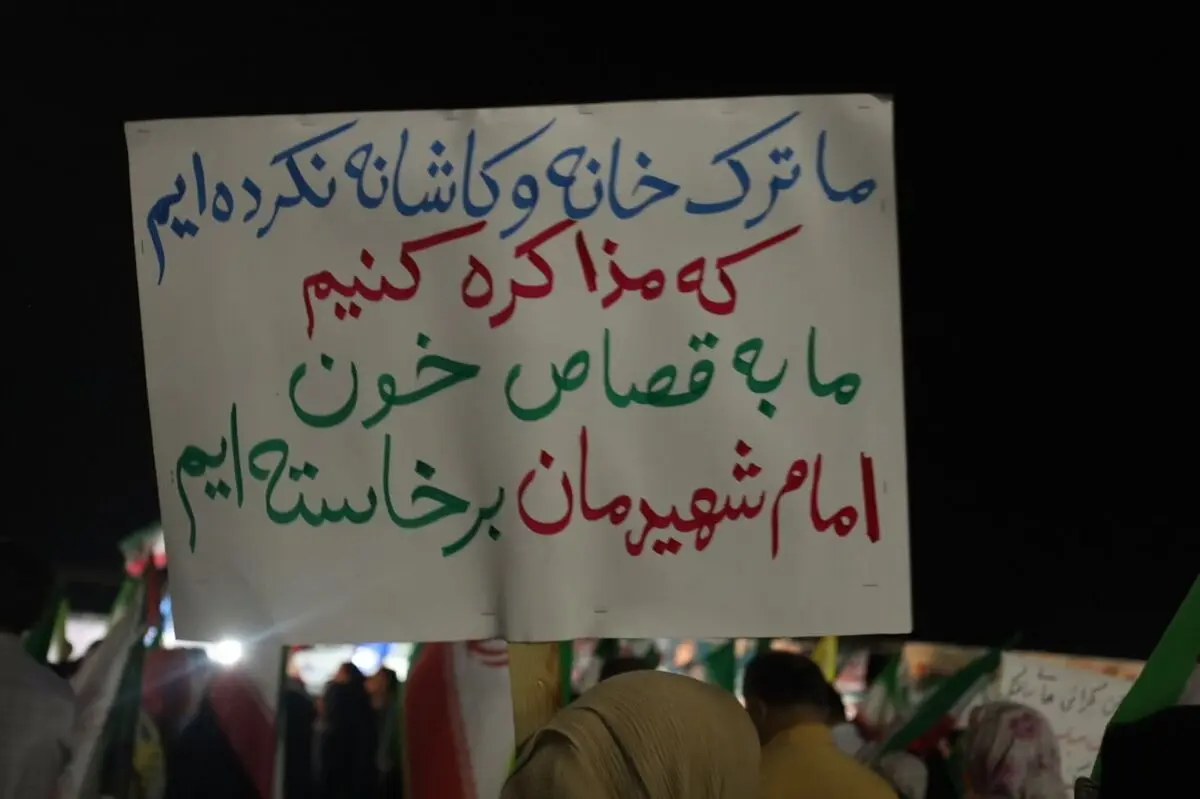 ما ترک خانه و کاشانه نکرده ایم
که مذاکره کنیم
ما به قصاص خون
امام شهیدمان برخاسته ایم